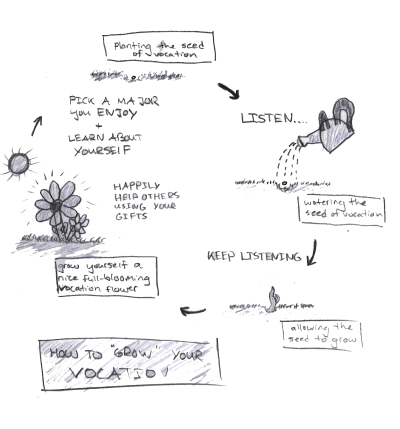 Planting the seed
of vocation
PICK A MAJOR
you ENJOY
+
LEARN ABOUT
YOURSELF
LISTEN....
watering the
seed of vocation
KEEP LISTENING
allowing the
seed to grow
HAPPILY
HELP OTHERS
USING YOUR
GIFTS
grow yourself a
nice full-blooming
vocation flower
HOW TO "GROW" YOUR